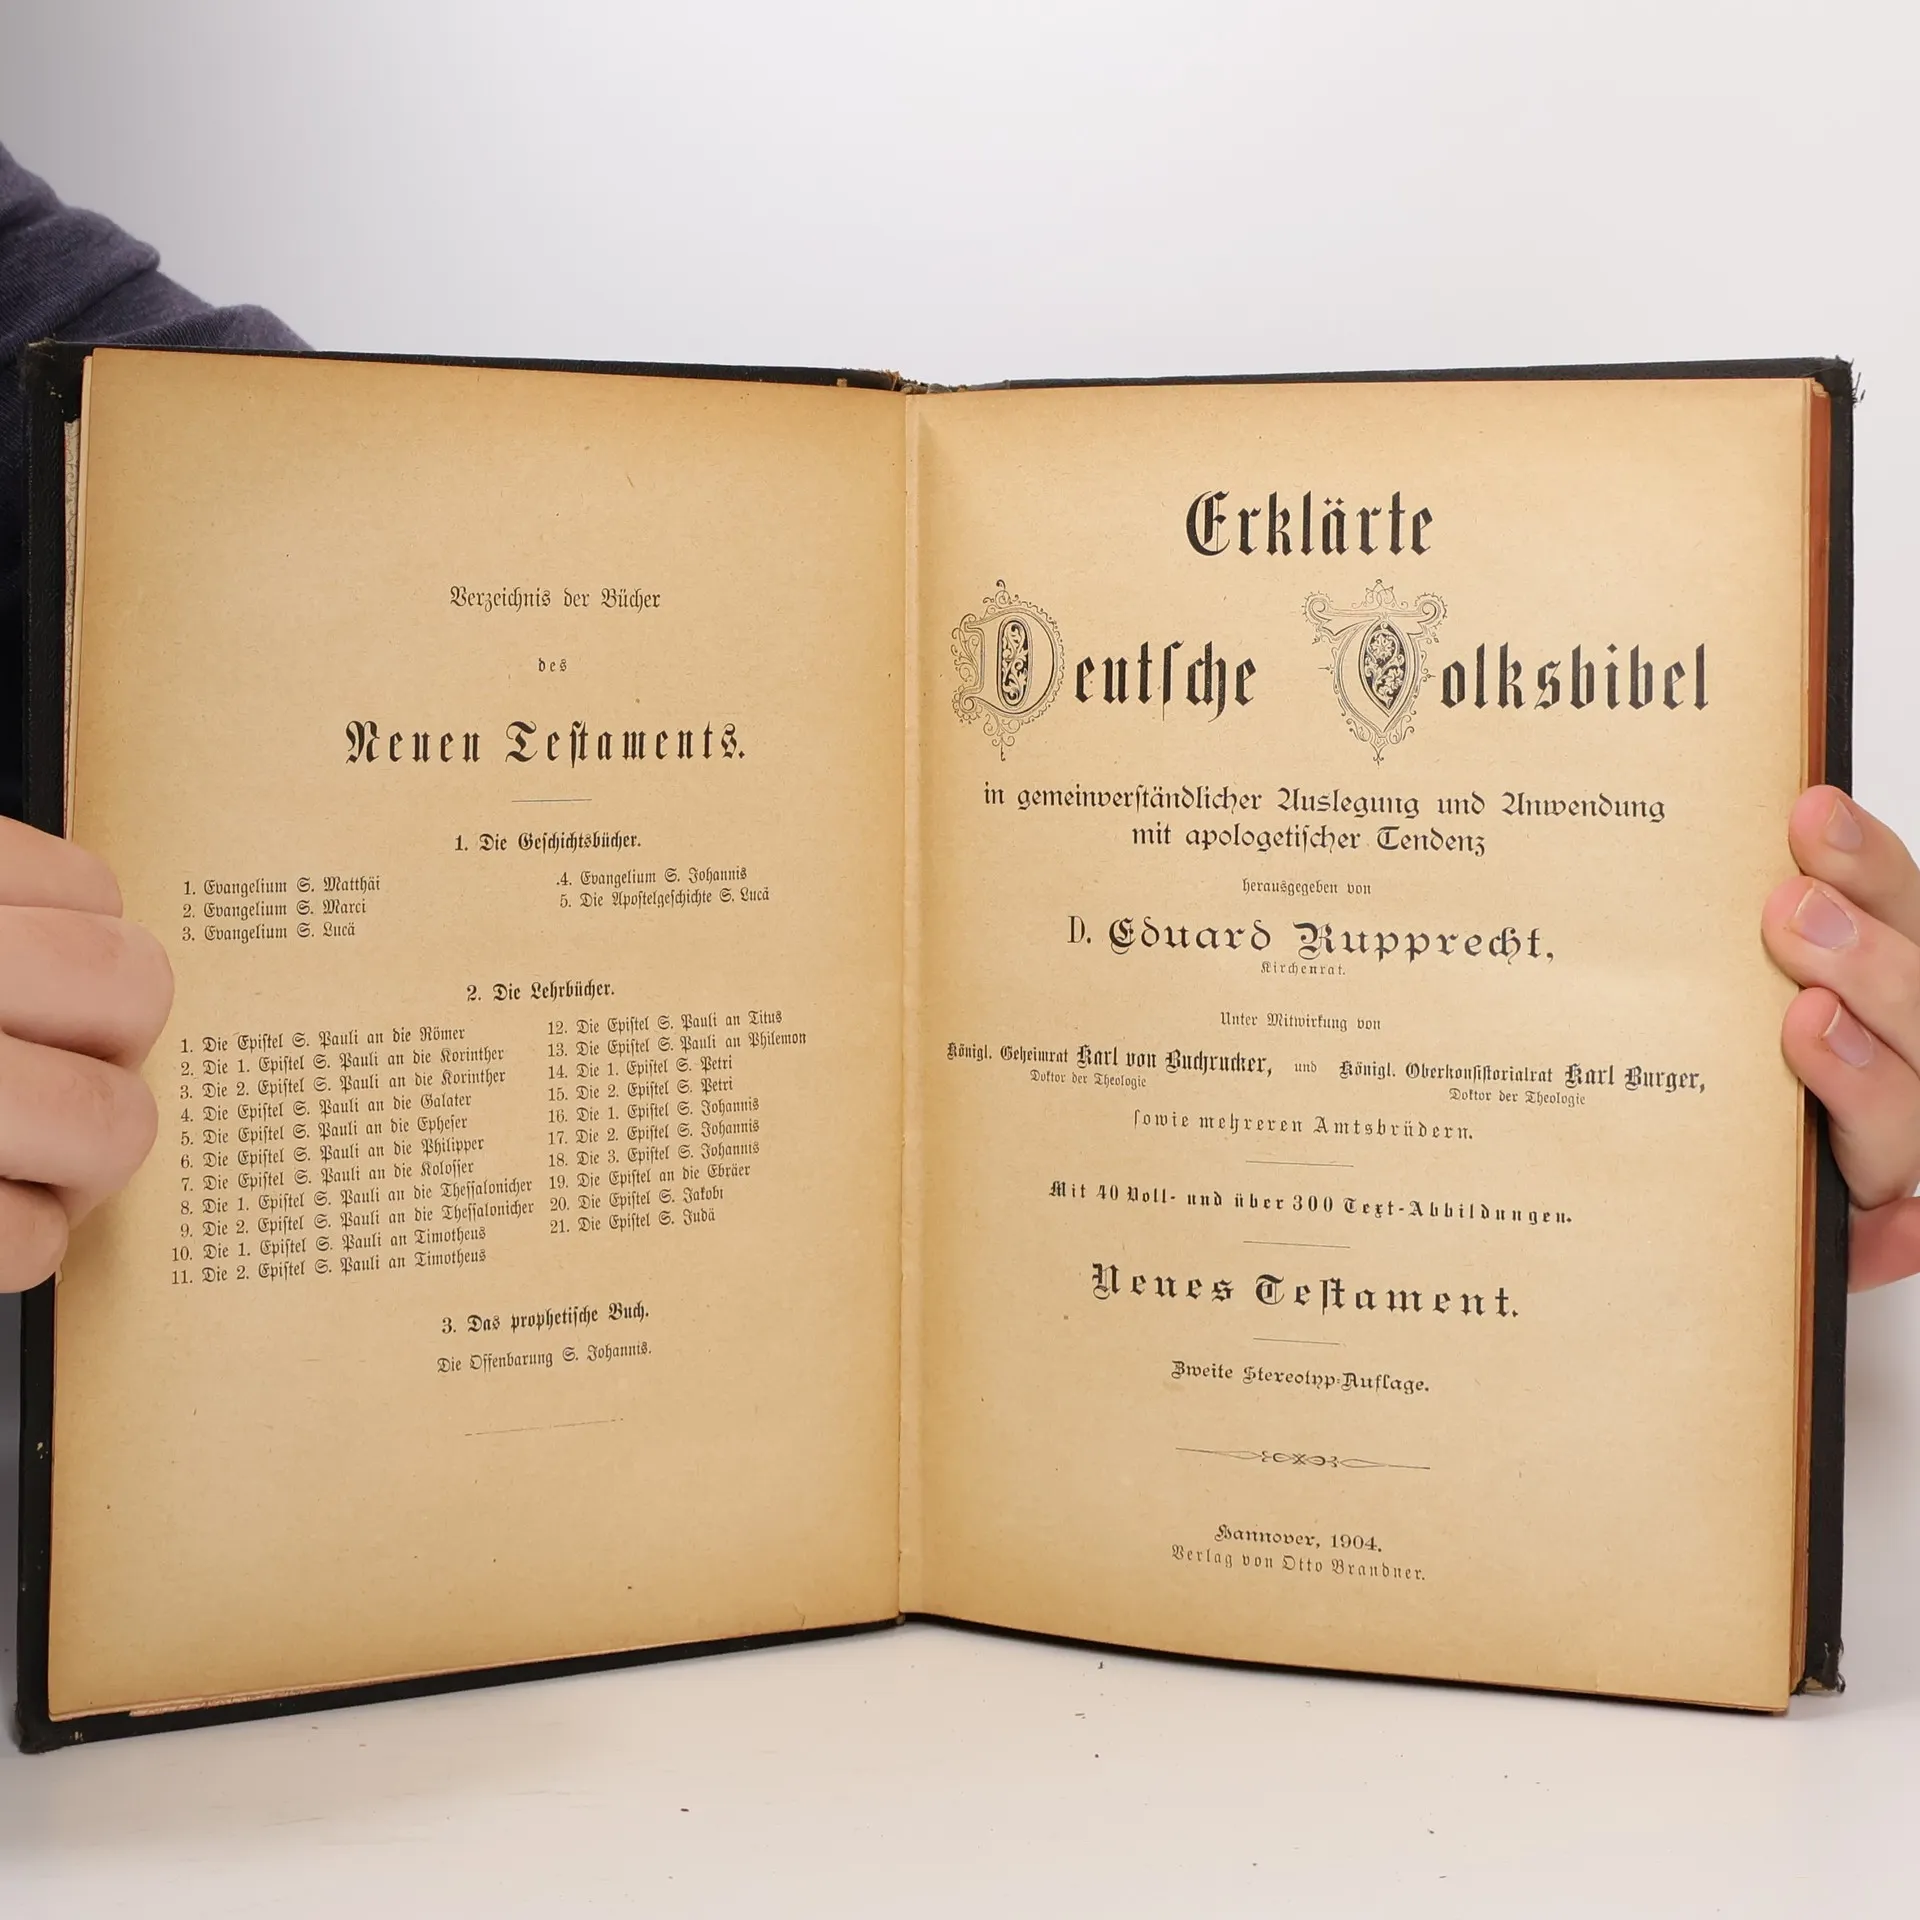 Verzeichnis der Bücher
des
Neuen Testaments.
1. Die Geschichtsbücher.
1. Evangelium S. Matthäi
2. Evangelium S. Marci
3. Evangelium S. Lucä
4. Evangelium S. Johannis
5. Die Apostelgeschichte S. Lucä
2. Die Lehrbücher.
1. Die Epistel S. Pauli an die Römer
2. Die 1. Epistel S. Pauli an die Korinther
3. Die 2. Epistel S. Pauli an die Korinther
4. Die Epistel S. Pauli an die Galater
5. Die Epistel S. Pauli an die Epheser
6. Die Epistel S. Pauli an die Philipper
7. Die Epistel S. Pauli an die Kolosser
8. Die 1. Epistel S. Pauli an die Thessalonicher
9. Die 2. Epistel S. Pauli an die Thessalonicher
10. Die 1. Epistel S. Pauli an Timotheus
11. Die 2. Epistel S. Pauli an Timotheus
12. Die Epistel S. Pauli an Titus
13. Die Epistel S. Pauli an Philemon
14. Die 1. Epistel S. Petri
15. Die 2. Epistel S. Petri
16. Die 1. Epistel S. Johannis
17. Die 2. Epistel S. Johannis
18. Die 3. Epistel S. Johannis
19. Die Epistel an die Ebräer
20. Die Epistel S. Jakobi
21. Die Epistel S. Judä
3. Das prophetische Buch.
Die Offenbarung S. Johannis.
Erklärte
Deutsche Volksbibel
in gemeinverständlicher Auslegung und Anwendung
mit apologetischer Tendenz
herausgegeben von
D. Eduard Rupprecht,
Kirchenrat.
Unter Mitwirkung von
Königl. Geheimrat Karl von Buchrucker, und Königl. Oberkonsistorialrat Karl Burger,
Doktor der Theologie Doktor der Theologie
sowie mehreren Amtsbrüdern.
Mit 40 Voll- und über 300 Text-Abbildungen.
Neues Testament.
Zweite Stereotyp-Auflage.
Hannover, 1904.
Verlag von Otto Brandner.